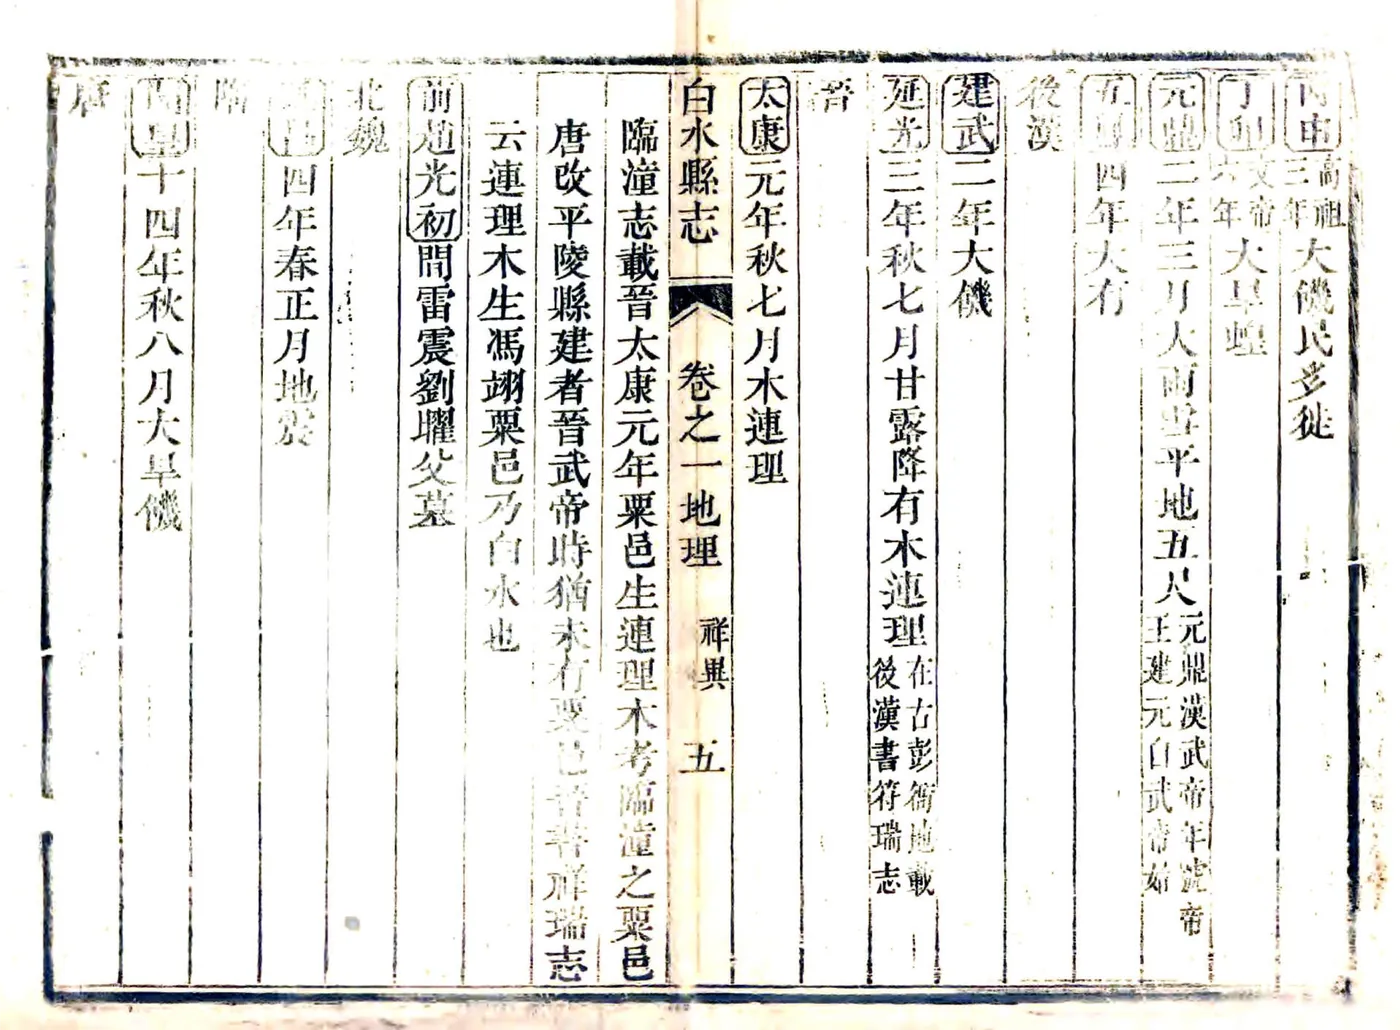 丙申高祖三年大饑民多徙
丁卯文帝六年大旱蝗
元鼎二年三月大雨雪平地五尺元鼎漢武帝年號帝王建元自武帝始
四年大有
後漢
建武二年大饑
延光三年秋七月甘露降有木連理在古彭衙地載後漢書符瑞志
晉
太康元年秋七月木連理
白水縣志 卷之一地理 祥異 五
臨潼志載晉太康元年粟邑生連理木考臨潼之粟邑
唐改平陵縣建者晉武帝時猶未有粟邑晉書祥瑞志
云連理木生馮翊粟邑乃白水也
前趙光初間雷震劉曜父墓
北魏
四年春正月地震
隋
開皇十四年秋八月大旱饑
唐